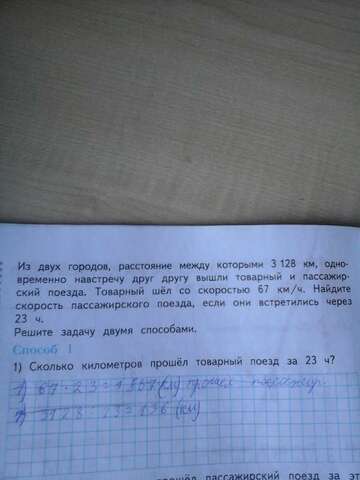 Из двух городов, расстояние между которыми 3 128 км, одно-
временно навстречу друг другу вышли товарный и пассажир-
ский поезда. Товарный шёл со скоростью 67 км/ч. Найдите
скорость пассажирского поезда, если они встретились через
23 ч.
Решите задачу двумя способами.
Способ 1
1) Сколько километров прошёл товарный поезд за 23 ч?
1) 67 · 23 = 1 (км) прошёл
3128 : 23 = 136 (км)
прошёл пассажирский поезд за эт